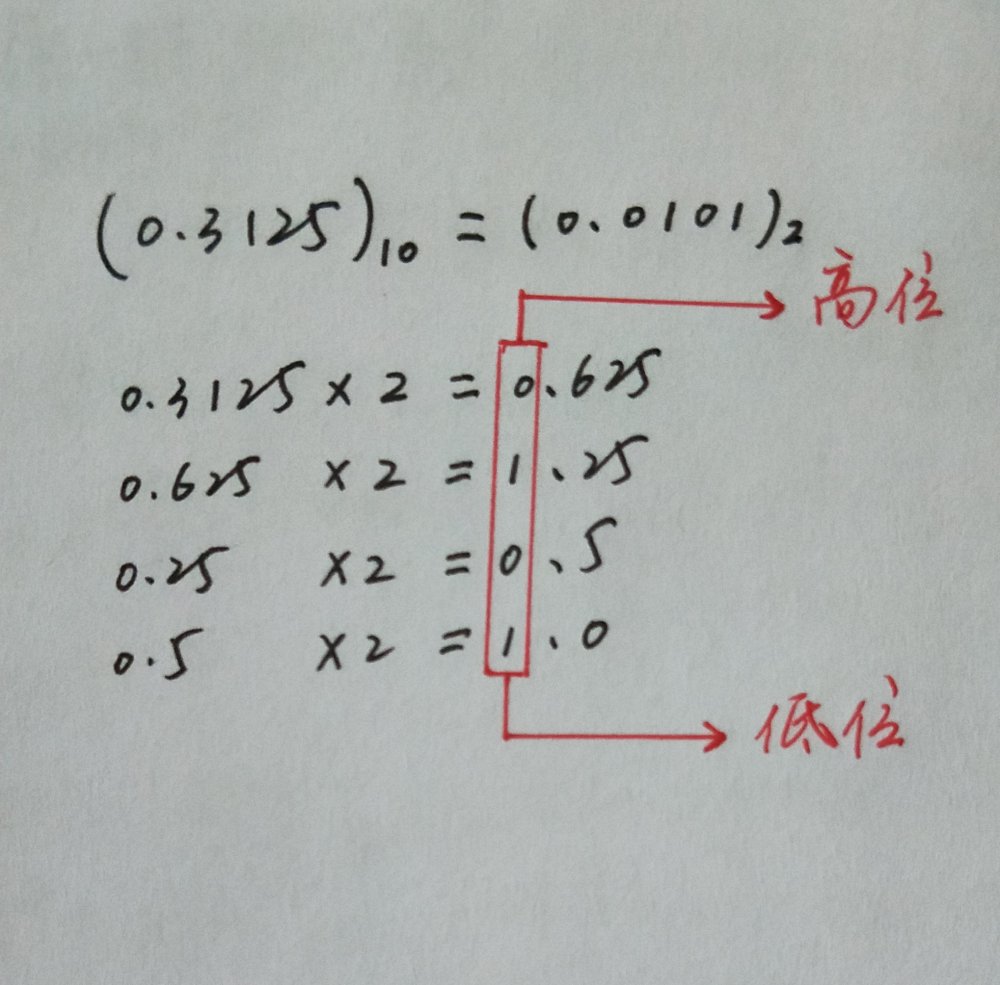 (0.3125)₁₀ = (0.0101)₂
高位
0.3125 × 2 = 0.625
0.625 × 2 = 1.25
0.25 × 2 = 0.5
0.5 × 2 = 1.0
低位